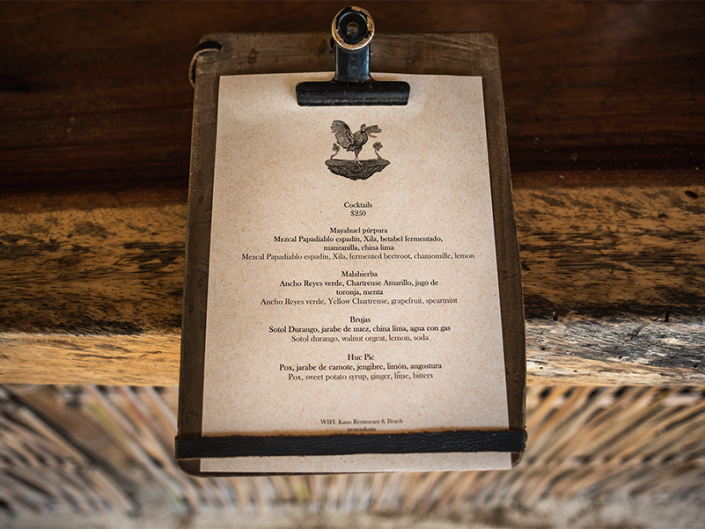 Cocktails
$250
Mayahuel púrpura
Mezcal Papadiablo espadín, Xila, betabel fermentado,
manzanilla, china lima
Mezcal Papadiablo espadín, Xila, fermented beetroot, chamomille, lemon
Malahierba
Ancho Reyes verde, Chartreuse Amarillo, jugo de
toronja, menta
Ancho Reyes verde, Yellow Chartreuse, grapefruit, spearmint
Brujas
Sotol Durango, jarabe de nuez, china lima, agua con gas
Sotol durango, walnut orgeat, lemon, soda
Huc Pic
Pox, jarabe de camote, jengibre, limón, angostura
Pox, sweet potato syrup, ginger, lime, bitters
WIFI: Kuun Restaurant & Beach